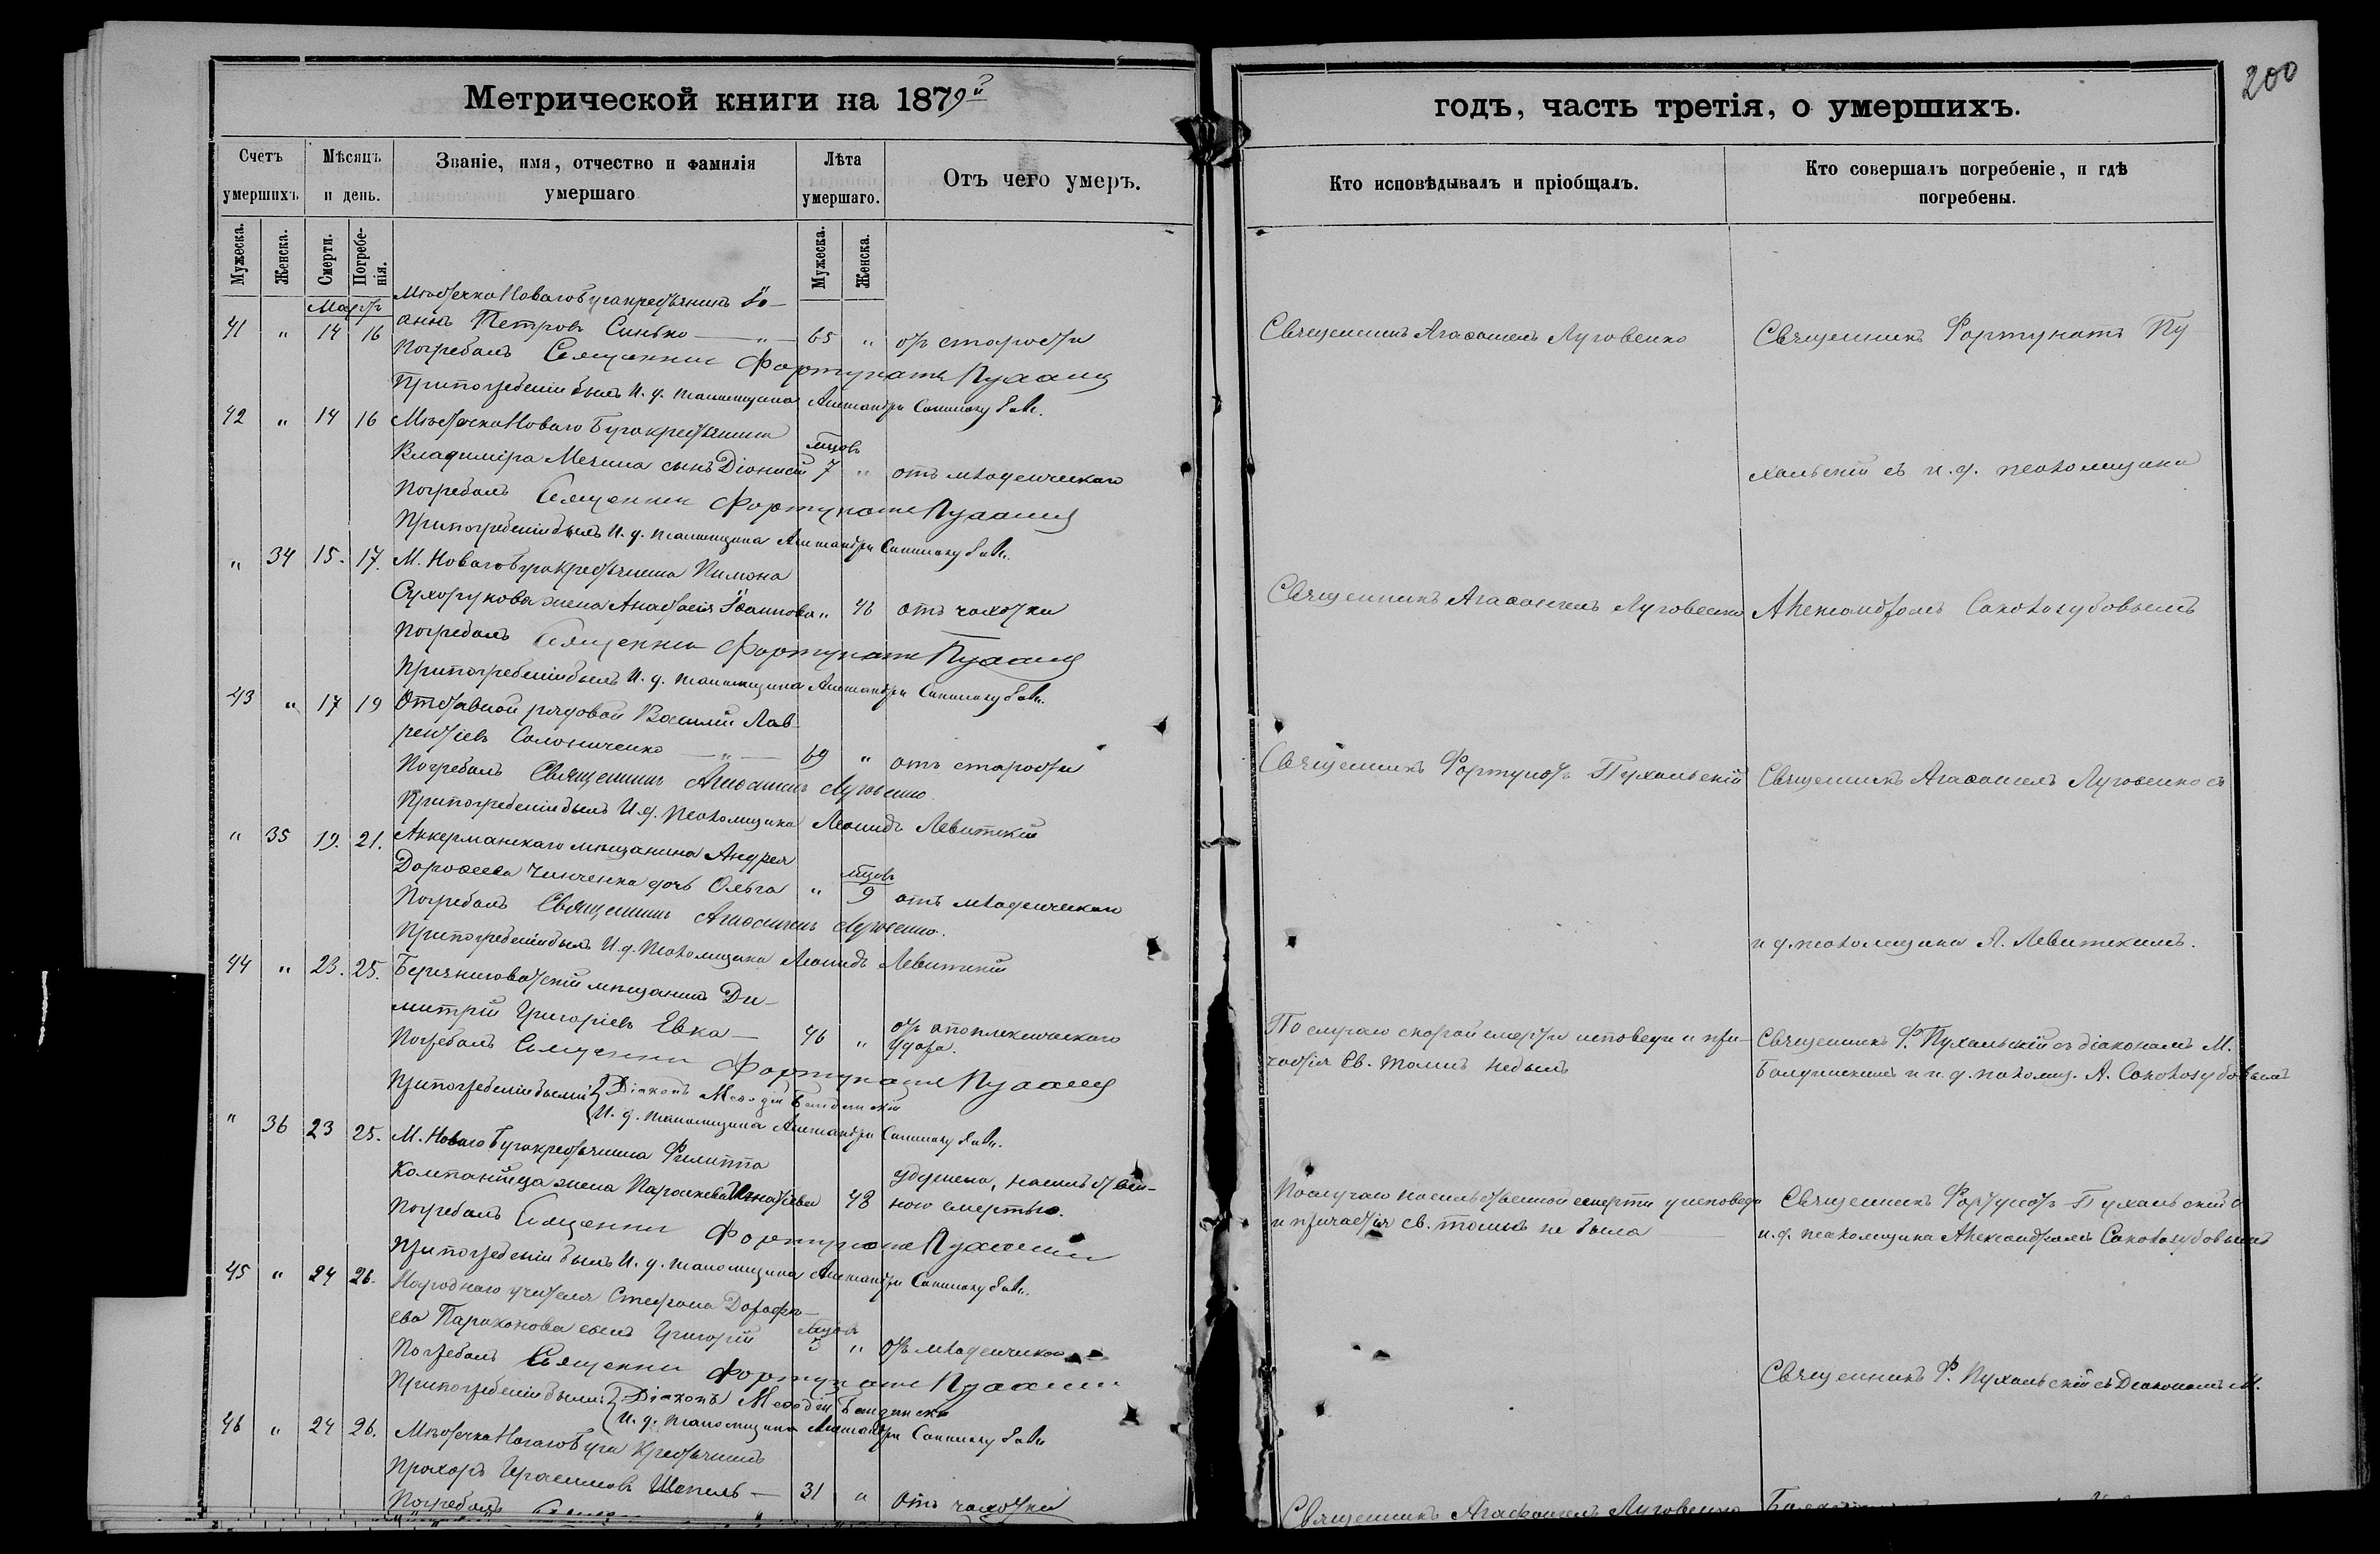 Метрической книги на 1879й
годъ, часть третія, о умершихъ.
200
Счетъ умершихъ
Мѣсяцъ и день.
Званіе, имя, отчество и фамилія умершаго
Лѣта умершаго.
Отъ чего умеръ.
Кто исповѣдывалъ и пріобщалъ.
Кто совершалъ погребеніе, и гдѣ погребены.
Мужеска.
Женска.
Смерти.
Погребенія.
Мужеска.
Женска.
Мартъ
Мѣстечка Новаго Буга крестьянинъ Іо-
41 " 14 16 аннъ Петровъ Синько — " — 65 " отъ старости
Священникъ Агаѳангелъ Луговенко
Священникъ Фортунатъ Пу
Погребалъ Священникъ Фортунатъ
При погребеніи былъ И. д. псаломщика Александръ
42 " 14 16 Мѣстечка Новаго Буга крестьянина
Владиміра Мечина сынъ Діонисій мцовъ 7 " отъ младенческаго
хальскій съ и. д. псаломщика
Погребалъ Священникъ Фортунатъ
При погребеніи былъ И. д. псаломщика Александръ
" 34 15. 17. М. Новаго Буга крестьянина Пимона
Сухорукова жена Анастасія Іоаннова " 46 отъ чахотки
Священникъ Агаѳангелъ Луговенко
Александромъ Соколозубовымъ
Погребалъ Священникъ Фортунатъ
При погребеніи былъ И. д. псаломщика Александръ
43 " 17 19 Отставной рядовой Василій Лав-
рентіевъ Солониченко — " — 69 " отъ старости
Священникъ Фортунатъ Пухальскій
Священникъ Агаѳангелъ Луговенко съ
Погребалъ Священникъ Агаѳангелъ Луговенко
При погребеніи былъ И. д. псаломщика Леонидъ Левитскій
" 35 19. 21. Аккерманскаго мѣщанина Андрея
Дороѳеева Чинченка дочь Ольга " мцовъ 9 отъ младенческаго
и д. псаломщика Л. Левитскимъ.
Погребалъ Священникъ Агаѳангелъ Луговенко.
При погребеніи былъ И. д. псаломщика Леонидъ Левитскій
44 " 23. 25. Березниговатскій мѣщанинъ Ди-
митрій Григоріевъ Евка — 46 " отъ апоплексическаго
удара.
По случаю скорой смерти исповеди и при-
частія Св. Таинъ небылъ
Священникъ Ф. Пухальскій съ діакономъ М.
и и. д. псаломщ. А. Соколозубовымъ
Погребалъ Священникъ Фортунатъ
При погребеніи были: Діаконъ Меѳодій
И. д. псаломщика Александръ
" 36 23 25. М. Новаго Буга крестьянина Филиппа
Компанійца жена Параскева Игнатіева 48 удушена, насильствен-
ною смертью.
По случаю насильственной смерти у исповеди
и причастія св. таинъ не была
Священникъ Фортунатъ Пухальскій съ
и. д. псаломщика Александромъ Соколозубовымъ
Погребалъ Священникъ Фортунатъ
При погребеніи былъ И. д. псаломщика Александръ
45 " 24 26. Народнаго учителя Стефана Дорофе-
ева Пархонова сынъ Григорій мцовъ 5 " отъ младенческаго
Священникъ Ф. Пухальскій съ Діакономъ М.
Погребалъ Священникъ Фортунатъ
При погребеніи были: Діаконъ Меѳодій
И. д. псаломщика Александръ
46 " 24 26. Мѣстечка Новаго Буга крестьянинъ
Прохоръ Герасимовъ Шепель — 31 " Отъ чахотки
Священникъ Агаѳангелъ Луговенко
Погребалъ